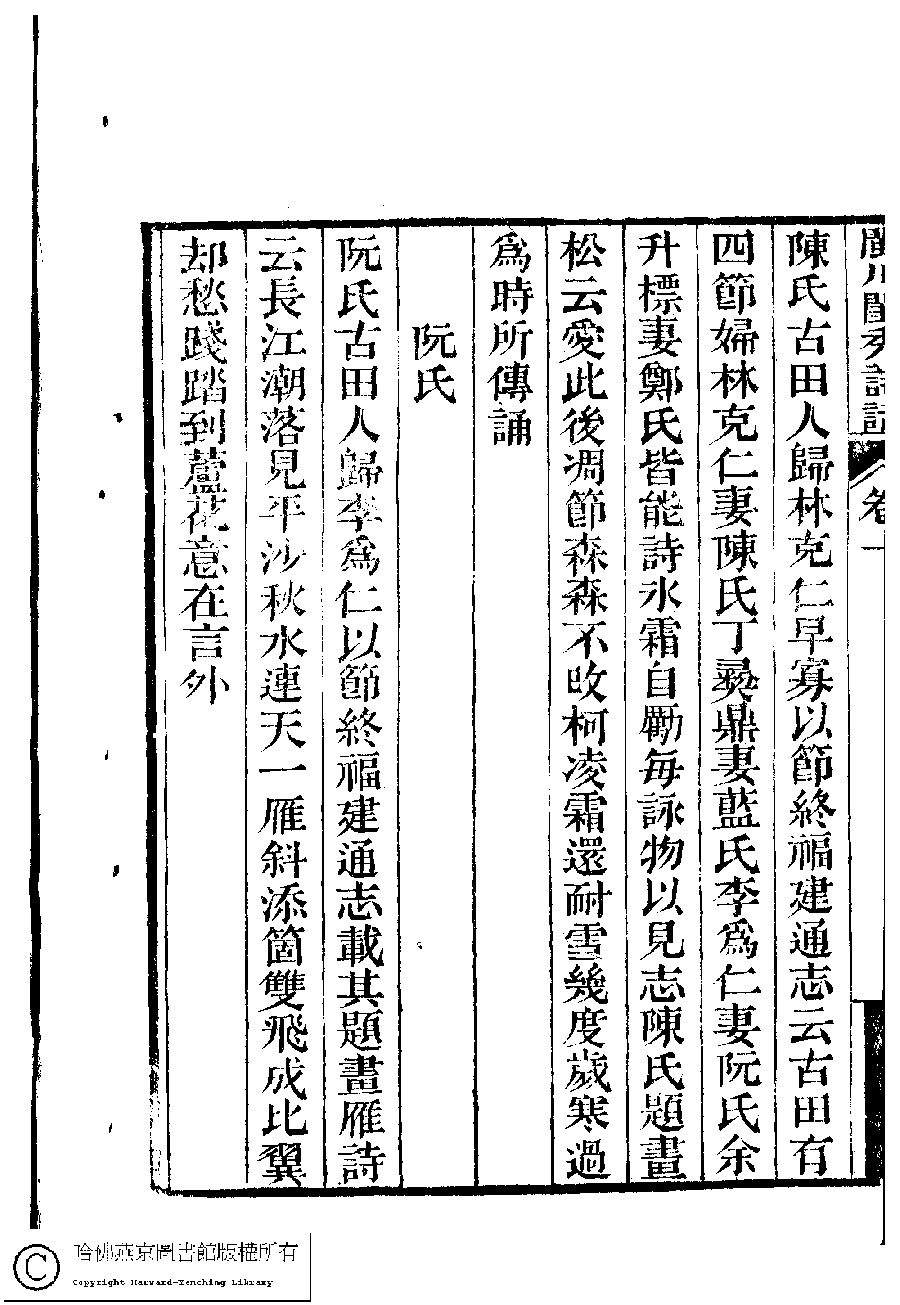 閨秀詩話 卷一
陳氏古田人歸林克仁早寡以節終福建通志云古田有
四節婦林克仁妻陳氏丁彝鼎妻藍氏李爲仁妻阮氏余
升標妻鄭氏皆能詩氷霜自勵每詠物以見志陳氏題畫
松云愛此後凋節森森不改柯凌霜還耐雪幾度歲寒過
爲時所傳誦
阮氏
阮氏古田人歸李爲仁以節終福建通志載其題畫雁詩
云長江潮落見平沙秋水連天一雁斜添箇雙飛成比翼
却愁踐踏到蘆花意在言外
哈佛燕京圖書館版權所有
Copyright Harvard-Yenching Library